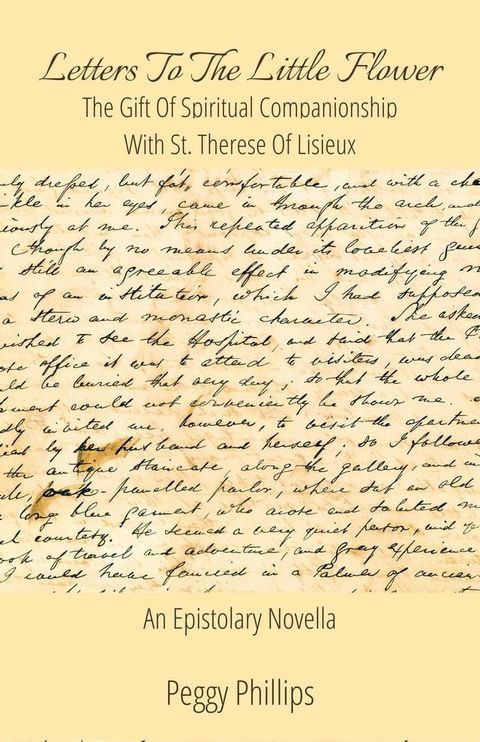 Letters To The Little Flower
The Gift Of Spiritual Companionship
With St. Therese Of Lisieux
ly dressed, but fat, comfortable, and with a
in her eyes, came in through the arch, and
iously at me. This repeated apparition of the
though by no means under its loveliest
still an agreeable effect in modifying
as of an institution, which I had supposed
a stern and monastic character. She asked
wished to see the Hospital, and said that the
office it was to attend to visitors, was dead
ld be buried that very day; so that the whole
would not conveniently be shown me.
dly invited me, however, to visit the apartment
by her husband and herself; so I followed
the antique staircase, along the gallery, and in
oak-panelled parlor, where sat an old
long blue garment, who arose and saluted me
courtesy. He seemed a very quiet person, and
ook of travel and adventure, and gray experience
I could have fancied in a Palmer of ancient
An Epistolary Novella
Peggy Phillips